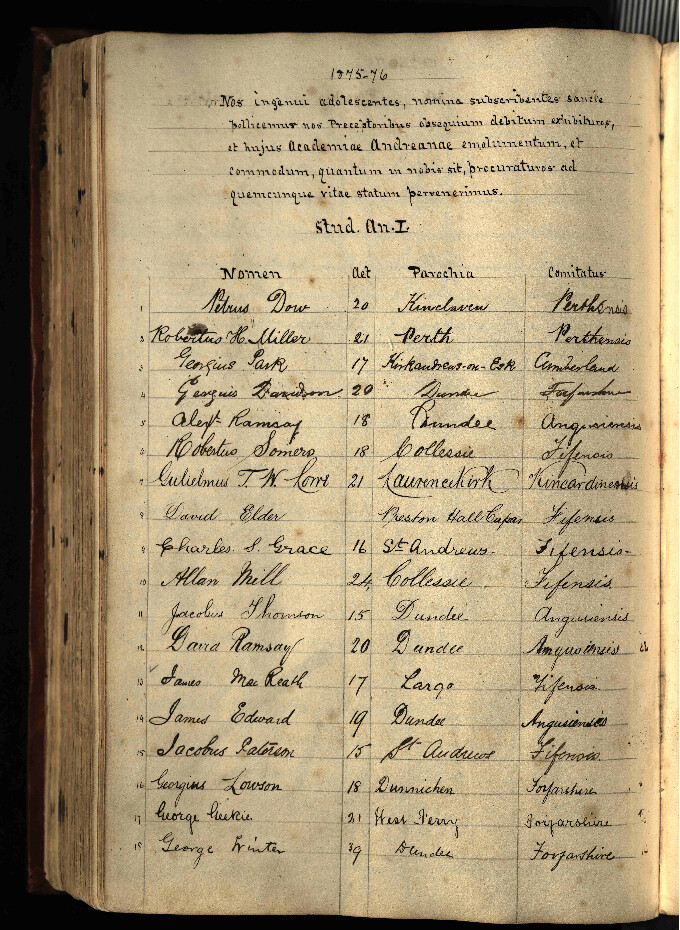 1875-76
Nos ingenui adolescentes, nomina subscribentes sancte
pollicemur nos Preceptoribus obsequium debitum exhibituros,
et hujus Academiae Andreanae emolumentum, et
commodum, quantum in nobis sit, procuraturos ad
quemcunque vitae statum pervenerimus.
Stud. An. I.
Nomen Aet Parochia Comitatus
1 Petrus Dow 20 Kinclaven Perthensis
2 Robertus H. Miller 21 Perth Perthensis
3 Georgius Park 17 Kirkandrews-on-Esk Cumberland
4 Georgius Davidson 20 Dundee Forfarshire
5 Alexr. Ramsay 18 Dundee Angusiensis
6 Robertus Somers 18 Collessie Fifensis
7 Gulielmus T. W. Lowe 21 Laurencekirk Kincardinensis
8 David Elder Preston Hall Cupar Fifensis
9 Charles S. Grace 16 St Andrews- Fifensis-
10 Allan Mill 24 Collessie Fifensis.
11 Jacobus Thomson 15 Dundee Angusiensis
12 David Ramsay 20 Dundee Angusiensis
13 James MacReath 17 Largo Fifensis
14 James Edward 19 Dundee Angusiensis
15 Jacobus Paterson 15 St Andrews Fifensis.
16 Georgius Lowson 18 Dunnichen Forfarshire
17 George Geekie 21 West Ferry Forfarshire
18 George Winter 39 Dundee Forfarshire